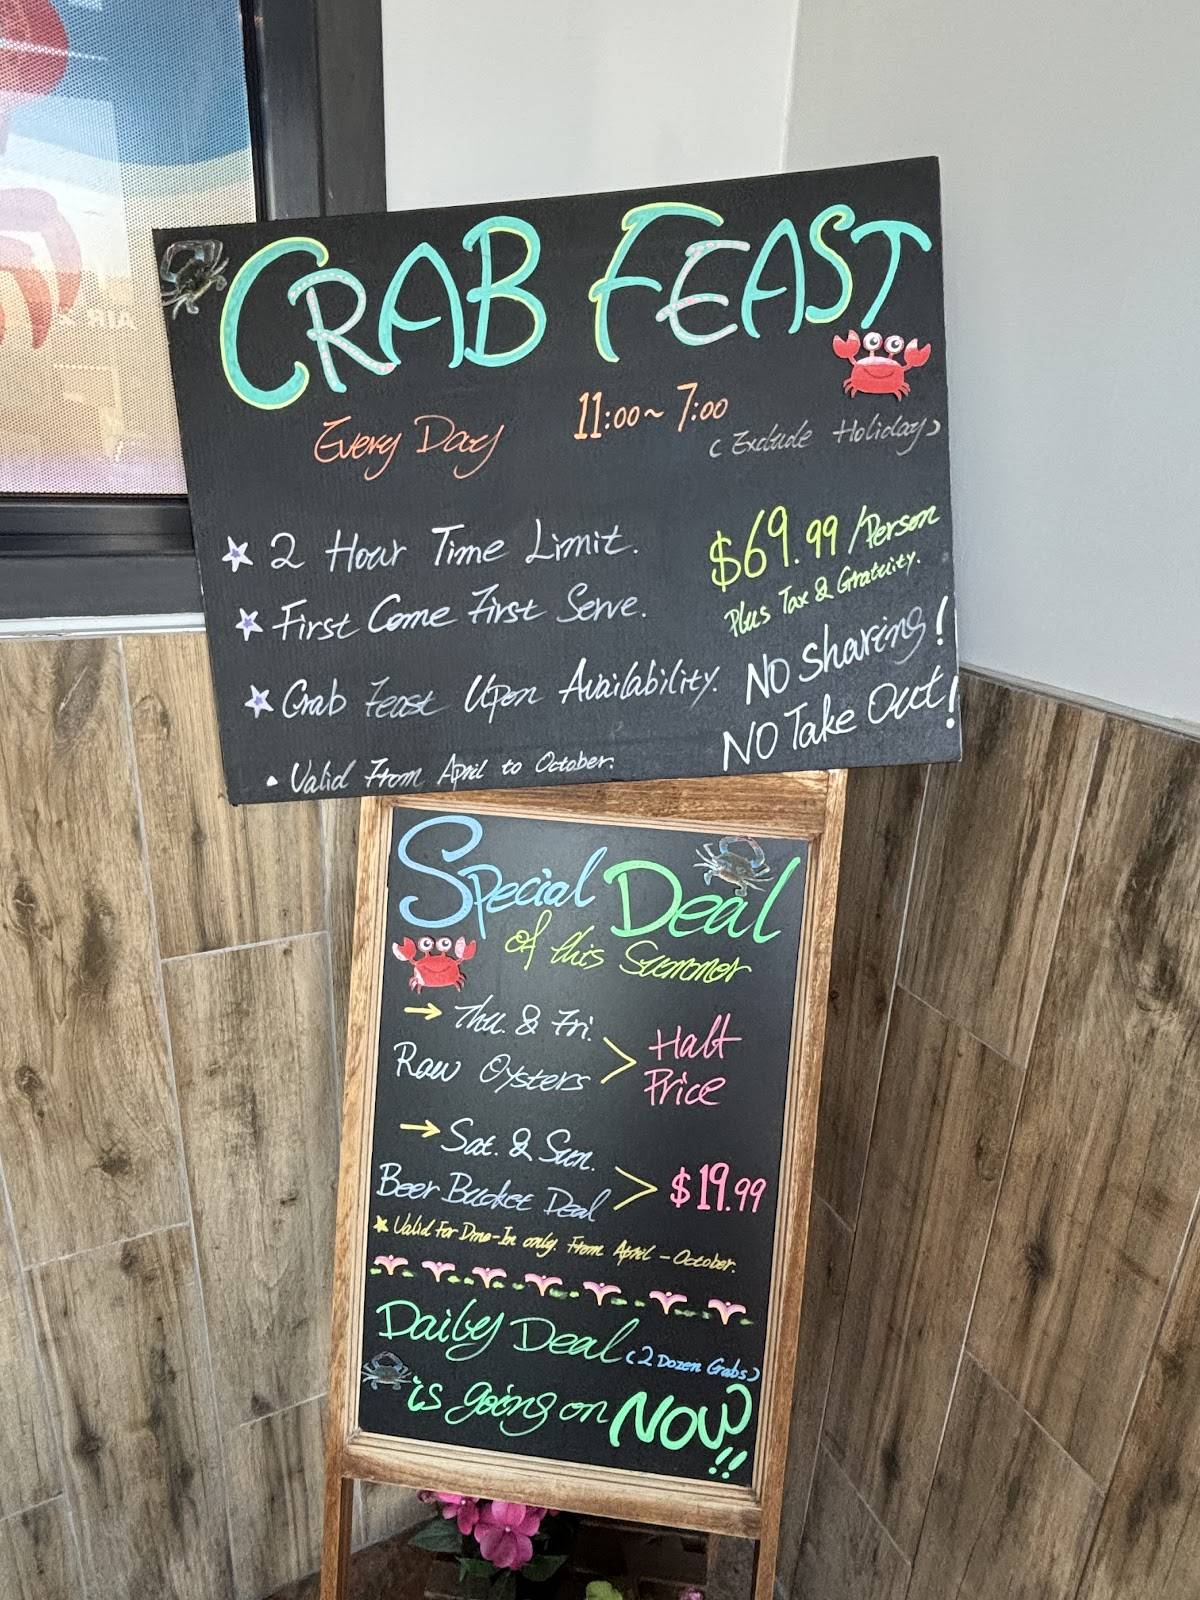 CRAB FEAST
Every Day 11:00~7:00
(Exclude Holiday)
2 Hour Time Limit.
First Come First Serve.
Crab Feast Upon Availability.
• Valid From April to October.
$69.99/Person
Plus Tax & Gratuity.
NO Sharing!
NO Take Out!
Special Deal
of this Summer
→ Thu. & Fri.
Raw Oysters > Half Price
→ Sat. & Sun.
Beer Bucket Deal > $19.99
Valid For Dine-In only. From April - October.
Daily Deal (2 Dozen Crabs)
is going on NOW!!